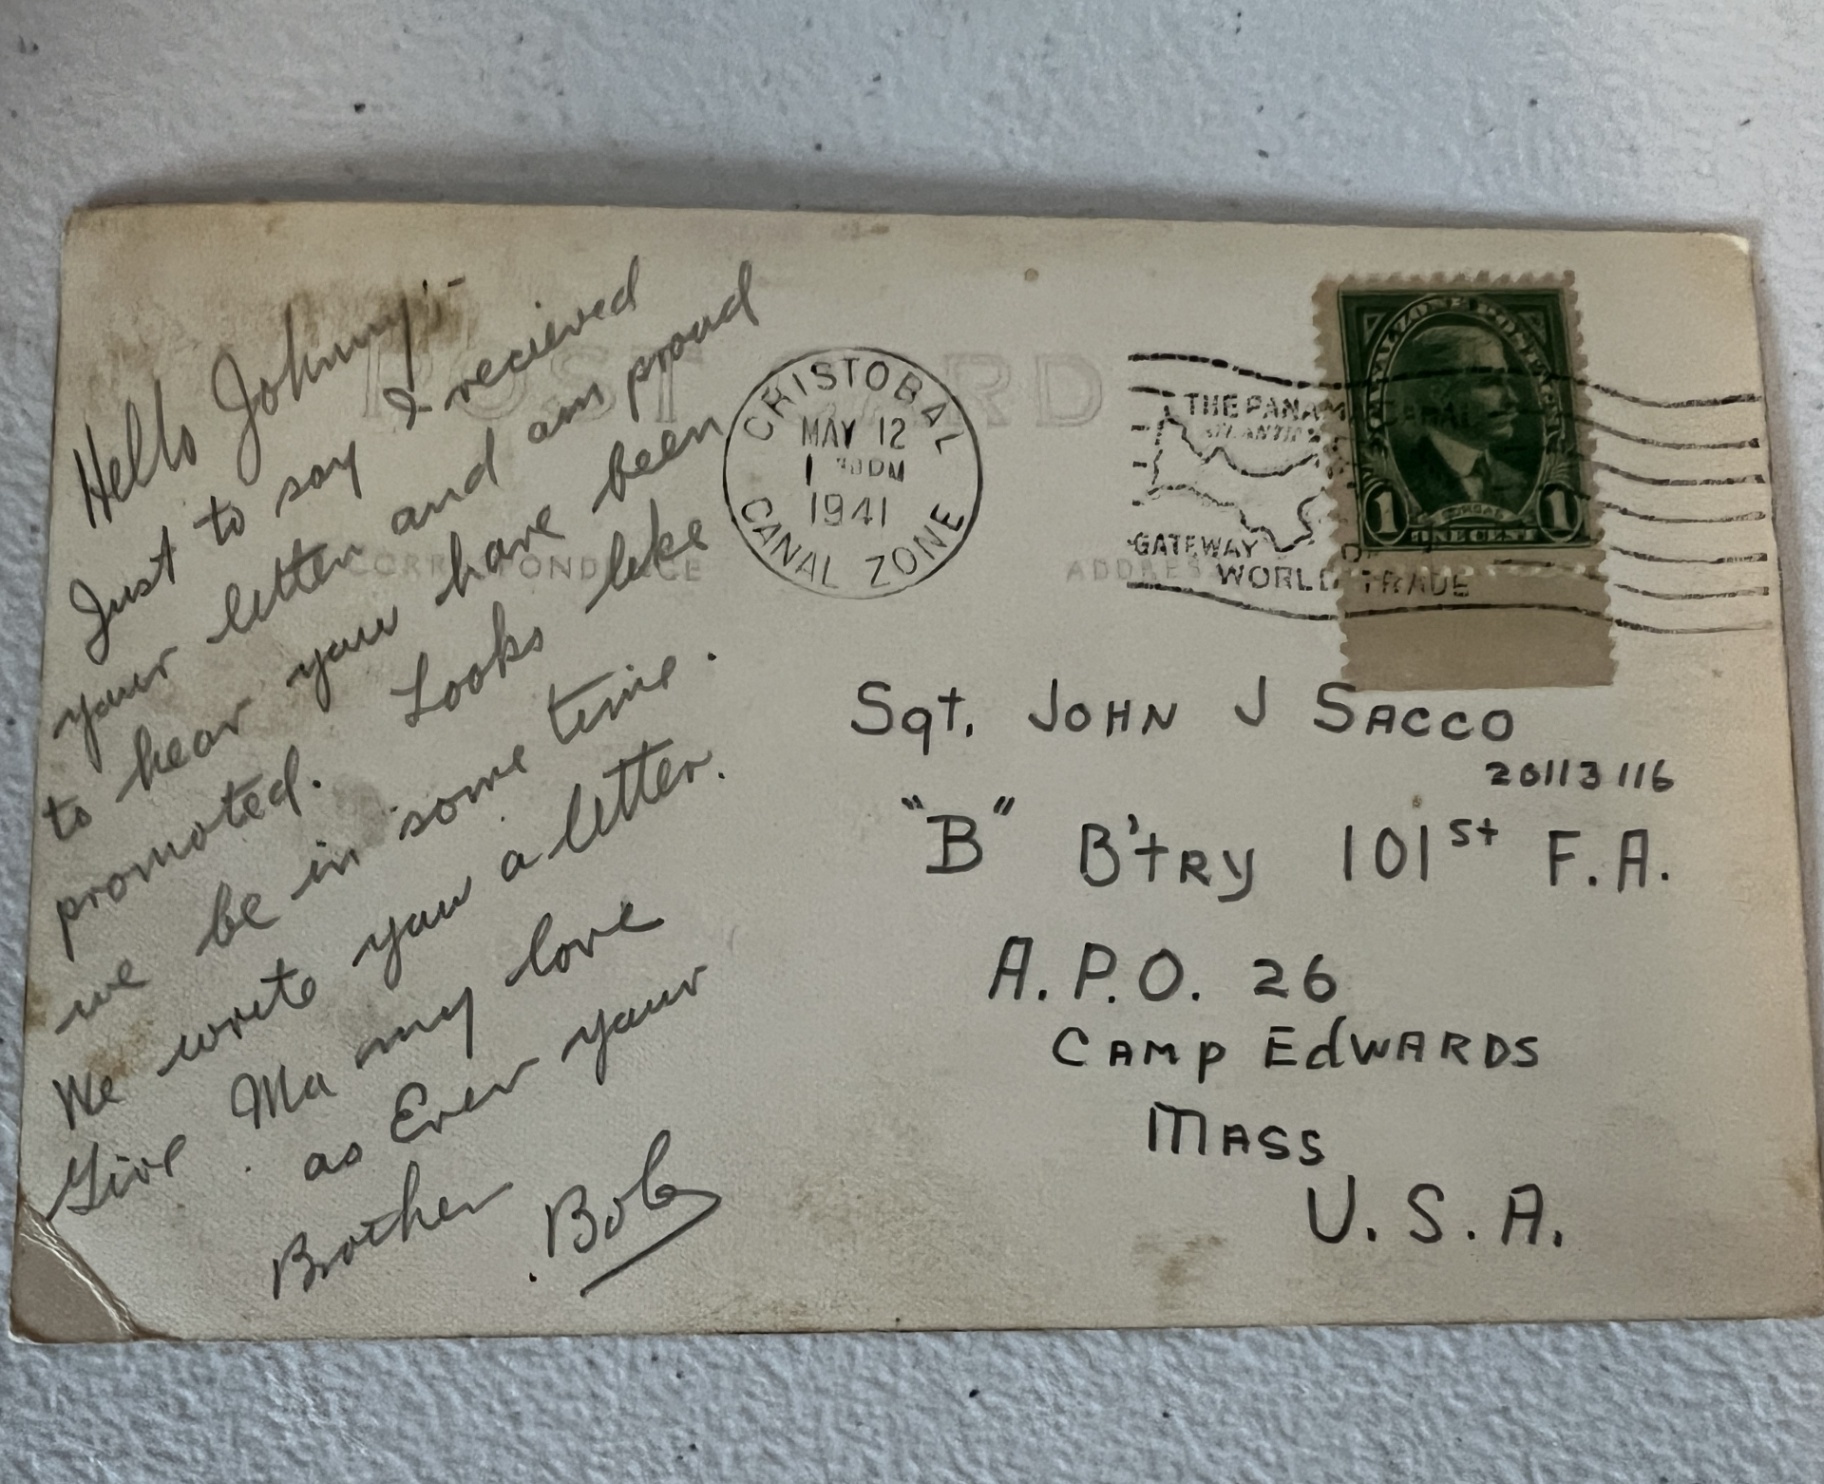 Hello Johnny:-
Just to say I recieved
your letter and am proud
to hear your have been
promoted. Looks like
we be in some time.
We write your a letter.
Give Ma my love
as Ever your
Brother
Bob
POST CARD
CORRESPONDENCE
ADDRESS
CRISTOBAL
MAY 12
1 30PM
1941
CANAL ZONE
THE PANAMA CANAL
ATLANTIC
GATEWAY
WORLD TRADE
CANAL ZONE POSTAGE
1 GORGAS 1
ONE CENT
Sgt. JOHN J SACCO
20113116
"B" B'TRY 101st F.A.
A.P.O. 26
CAMP EdWARDS
MASS
U.S.A.